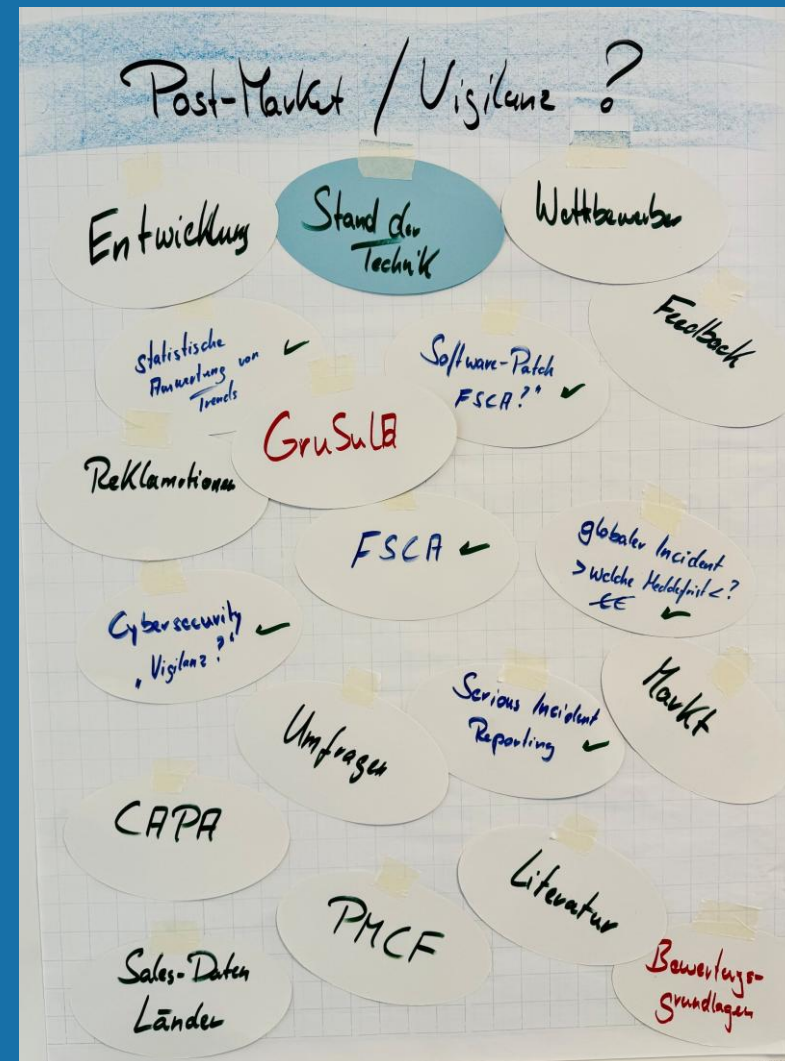 Post-Market / Vigilanz ?
Entwicklung
Stand der
Technik
Wettbewerber
Feedback
statistische
Auswertung von
Trends
Software-Patch
FSCA?"
GruSuLa
Reklamationen
FSCA
globaler Incident
> welche Meldefrist < ?
Cybersecurity
"Vigilanz?"
Umfragen
Serious Incident
Reporting
Markt
CAPA
PMCF
Literatur
Sales-Daten
Länder
Bewertungs-
grundlagen